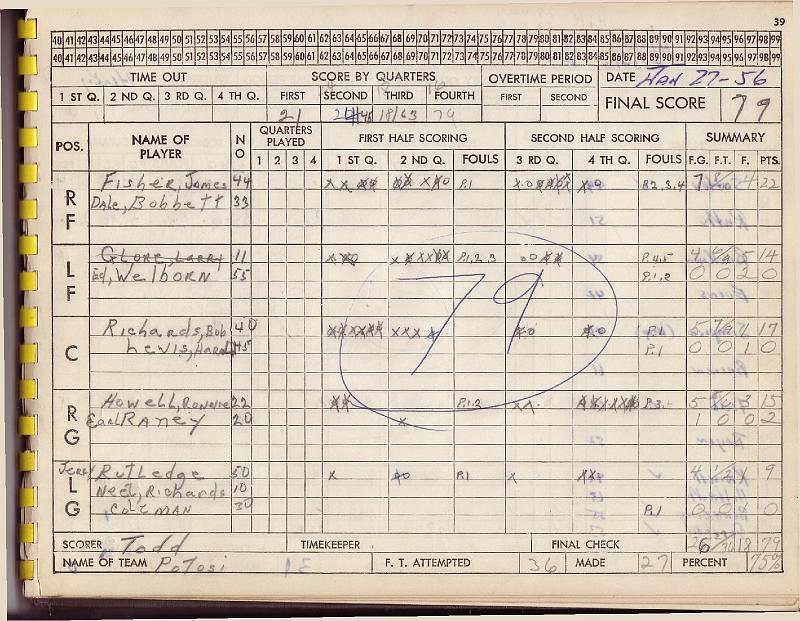 39
40 41 42 43 44 45 46 47 48 49 50 51 52 53 54 55 56 57 58 59 60 61 62 63 64 65 66 67 68 69 70 71 72 73 74 75 76 77 78 79 80 81 82 83 84 85 86 87 88 89 90 91 92 93 94 95 96 97 98 99
40 41 42 43 44 45 46 47 48 49 50 51 52 53 54 55 56 57 58 59 60 61 62 63 64 65 66 67 68 69 70 71 72 73 74 75 76 77 78 79 80 81 82 83 84 85 86 87 88 89 90 91 92 93 94 95 96 97 98 99
TIME OUT SCORE BY QUARTERS OVERTIME PERIOD DATE JAN 27-56
1 ST Q. 2 ND Q. 3 RD Q. 4 TH Q. FIRST SECOND THIRD FOURTH FIRST SECOND FINAL SCORE 79
21 18/63 79
POS. NAME OF PLAYER NO QUARTERS PLAYED FIRST HALF SCORING SECOND HALF SCORING SUMMARY
1 2 3 4 1 ST Q. 2 ND Q. FOULS 3 RD Q. 4 TH Q. FOULS F.G. F.T. F. PTS.
RF Fisher, James 44 P.1 P.2,3,4 7 4 22
Dale, Bobbett 33
LF Glore, Larry 11 P.1,2,3 P.4,5 4 5 14
Ed, Welborn 55 P.1,2 0 0 2 0
79
C Richards, Bob 40 P.1 5 17
Lewis, Harold 45 P.1 0 0 1 0
RG Howell, Ronnie 22 P.1.2 P.3 5 3 15
Earl Raney 20 1 0 0 2
LG Jerry Rutledge 50 P.1 4 9
Neel, Richards 10
Coleman 30 P.1 0
SCORER Todd TIMEKEEPER FINAL CHECK 26 18 79
NAME OF TEAM Potosi F. T. ATTEMPTED 36 MADE 27 PERCENT 75%